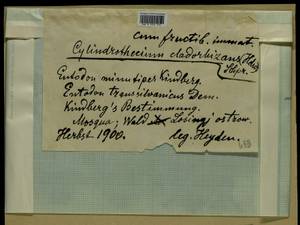 cum fructib. immat.
Cylindrothecium cladorhizans Hdw.
Schpr.
Entodon minutipes Kindberg.
Entodon transsilvanicus Dem.
Kindberg's Bestimmung.
Mosqua; Wald Losing ostrow.
Herbst 1900. leg. Heyden.